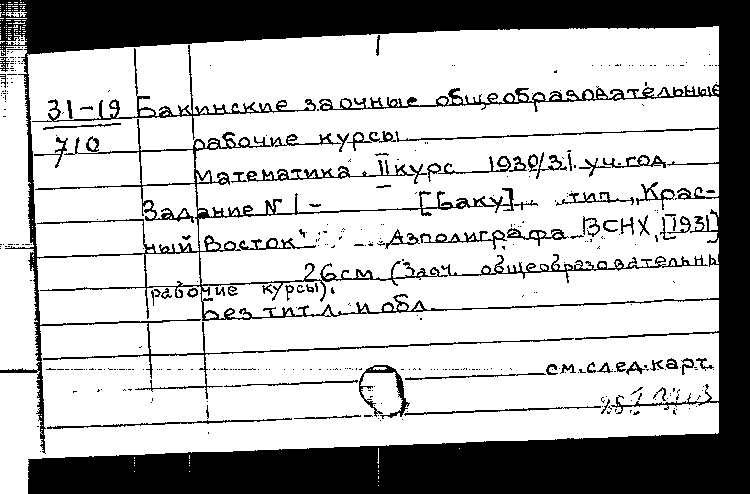 31-19 Бакинские заочные общеобразовательные
710 рабочие курсы.
Математика. II курс 1930/31 уч. год.
Задание N 1 - [Баку], тип. „Крас-
ный Восток" Азполиграфа ВСНХ, [1931]
26 см. (Заоч. общеобразовательны
рабочие курсы).
Без тит. л. и обл.
см. след. карт.